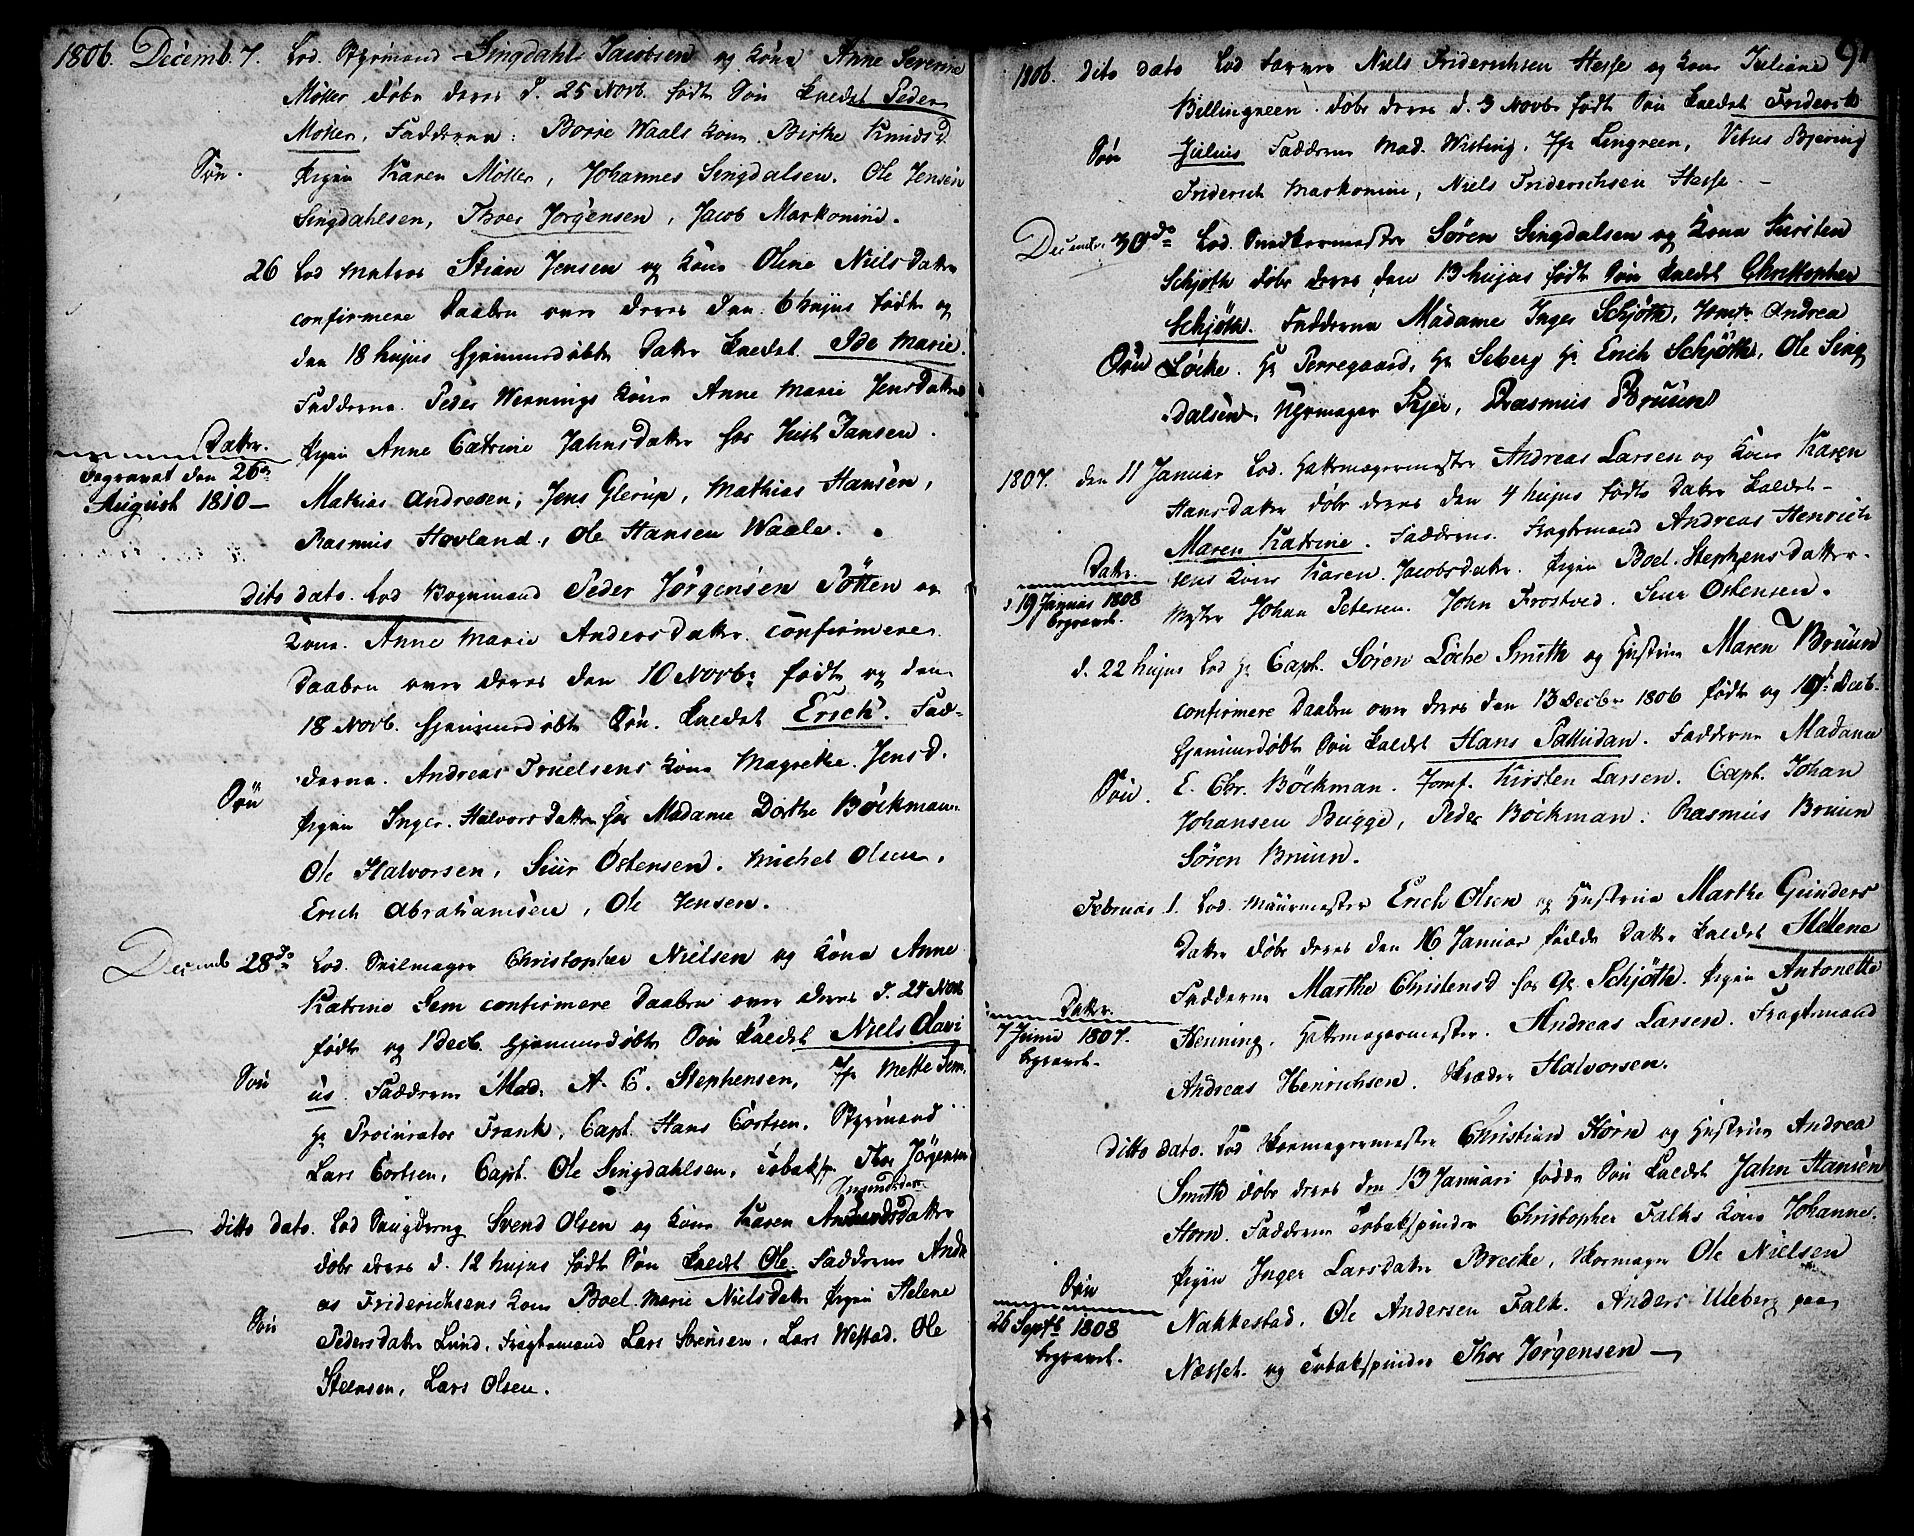 1806. Decemb. 7. Lod Styrmand Singdahl Jacobsen og Kone Anne Severine
Møller døbe deres d. 25 Novb. født Søn kaldet Peder
Møller. Fadderne: Børre Waals Kone. Birthe Knudsd.
Søn. Pigen Karen Møller, Johannes Singdalsen. Ole Jensen
Singdahlsen, Thoer Jørgensen, Jacob Markonini.
26 Lod Matros Stian Jensen og Kone Oline Nielsdatter
confirmere Daaben over deres den 6 hujus fødte og
den 18 hujus hjemmedøbte Datter kaldet. Ide Marie.
Fadderne. Peder Wennings Kone Anne Marie Jensdatter
Datter. Pigen Anne Catrine Jahnsdatter hos Just Jansen.
begravet den 26de
August 1810 — Mathias Andresen, Jens Glerup, Mathias Hansen,
Rasmus Hovland, Ole Hansen Waale.
dito dato. Lod Bognmand Peder Jørgensen Pötten og
Kone. Anne Marie Andersdatter. confirmere
Daaben over deres den 10 Novbr. født og den
18 Novb. hjemmedøbt Søn. kaldet Erich. Fad-
Søn derne. Andreas Truelsens Kone Magrethe. Jensd.
Pigen Inger. Halvorsdatter hos Madame Dorthe Böckman.
Ole Halvorsen, Siur Ostensen. Michel Olsen,
Erich Abrahamsen, Ole Jensen.
Decemb. 28de Lod. Seilmager Christopher Nielsen og Kone Anne
Katrine Sem confirmere Daaben over deres d. 24 Novb.
født og 1 Decb. hjemmedøbt Søn kaldet Niels Olavi
Søn us. Fadderne Mad. A. C. Stephensen, Jfr Mette Sem.
Hr Procurator Frank, Capt. Hans Cortsen. Styrmand
Lars Cortsen, Capt. Ole Singdahlsen, Tobaksp. Thor Jörgensen
Amundsdatter
ditto dato. Lod Svend Olsen og Kone Karen Amundsdatter
døbe deres d. 12 hujus født Søn kaldet Ole. Fadderne Andre
as Friderichsens Kone Boel Marie Nielsdatter Pigen Helene
Søn Pedersdatter Lund. Fragtemand Lars Sörensen, Lars Westad. Ole
Steensen, Lars Olsen.
91
1806. dito dato Lod Farver Niels Friderichsen Hesse og Kone Juliane
Billingreen. døbe deres d. 3 Novbr født Søn kaldet Friderik
Søn Julius Fadderne Mad. Wisting. Jfr Lingreen, Vitus Bjering
Friderich Markonini, Niels Friderichsen Hesse. —
Decembr. 30de Lod. Snedkermester Søren Singdalsen og Kone Kirsten
Schjøth døbe deres den 13 hujus født Søn kaldet Christopher
Schjöth. Fadderne Madame Inger Schjöth, Jomfr Andrea
Søn Löcke. Hr Perregaard, Hr Seberg Hr Erich Schjöth, Ole Sing
dalsen, Uhrmager Kjer, Rasmus Bruun
1807. den 11 Januar Lod. Hattemagermester Andreas Larsen og Kone Karen
Hansdatter døbe deres den 4 hujus fødte Datter kaldet —
Maren Katrine. Fadderne. Fragtmand Andreas Henrich
Datter. sens Kone Karen. Jacobsdatter. Pigen Boel. Stephensdatter.
d. 19 Januar 1808
begravet. Johan Petersen. John Frostved. Siur Ostensen.
d. 22 hujus Lod Hr Capt. Søren Löche Smith og Hustrue Maren Bruun
confirmere Daaben over deres den 13 Decbr 1806 født og 19de Decb.
hjemmedøbt Søn kaldet Hans Palludan. Fadderne Madame
Søn. E. Chr. Böckman. Jomf. Kirsten Larsen. Capt. Johan
Johansen Bugge, Peder Böckman. Rasmus Bruun
Søren Bruun.
Februar 1. Lod. Muurmester Erich Olsen og Hustrue Marthe Gunders
Datter døbe deres den 16 Januar fødde Datter kaldet Helene
Fadderne Marthe Christensd hos Hr. Schjöth. Pigen Antonette
Datter.
7 Junii 1807. Henning. Hattemagermester. Andreas Larsen. Fragtemand
begravet.
Andreas Henrichsen. Halvorsen.
Ditto dato. Lod Skomagermester Christian Horn og Hustrue Andrea
Smith døbe deres den 13 Januari fødde Søn kaldet Jahn Hansen
Horn. Fadderne Tobakspinder Christopher Falks Kone Johanne.
Søn Pigen Inger Larsdatter Brecke, Skomager Ole Nielsen
26 Septb 1808 Nakkestad, Ole Andersen Falk. Anders Uleberg paa
begravet.
Næsset. og Tobakspinder Thor Jørgensen —